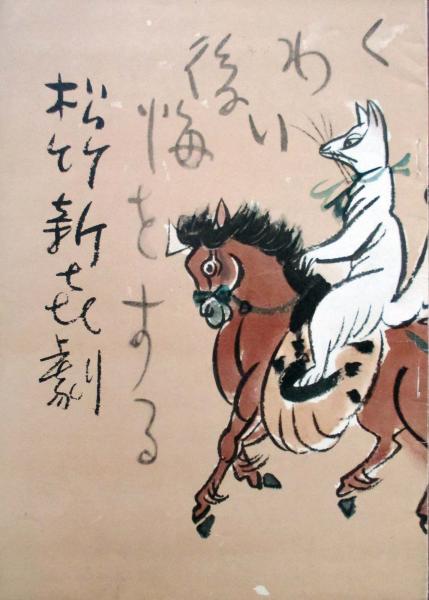 く
わい
後
悔をする
松竹新㐂劇